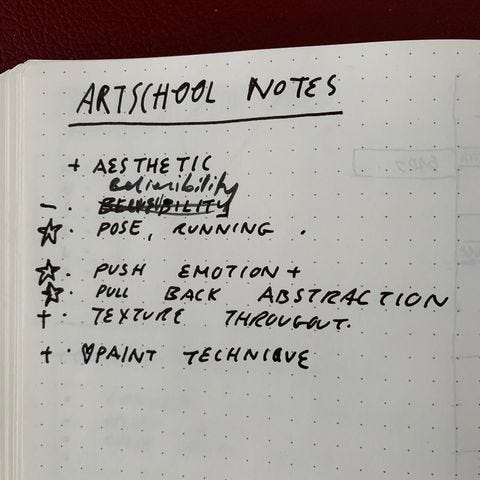 ARTSCHOOL NOTES
+ AESTHETIC
Believibility
- .
☆ . POSE, RUNNING .
☆ . PUSH EMOTION +
☆ . PULL BACK ABSTRACTION
+ . TEXTURE THROUGOUT.
+ . PAINT TECHNIQUE